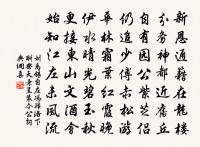 新恩通籍在龍樓
分務神都近舊丘
自有園公紫芝侶
仍追少傅赤松游
華林霜葉紅霞晚
伊水晴光碧玉秋
更接東山文酒會
始知江左未風流
劉禹錫自左馮歸洛下
酬樂天兼呈裴令公詩